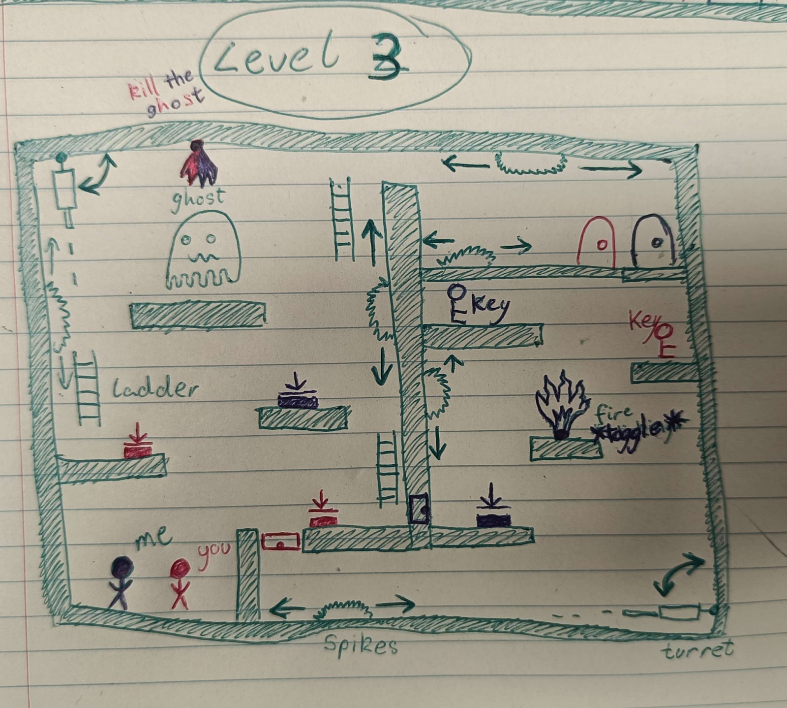 Level 3
kill the
ghost
ghost
Key
Key
Ladder
fire
*toggle*
me
you
Spikes
turret